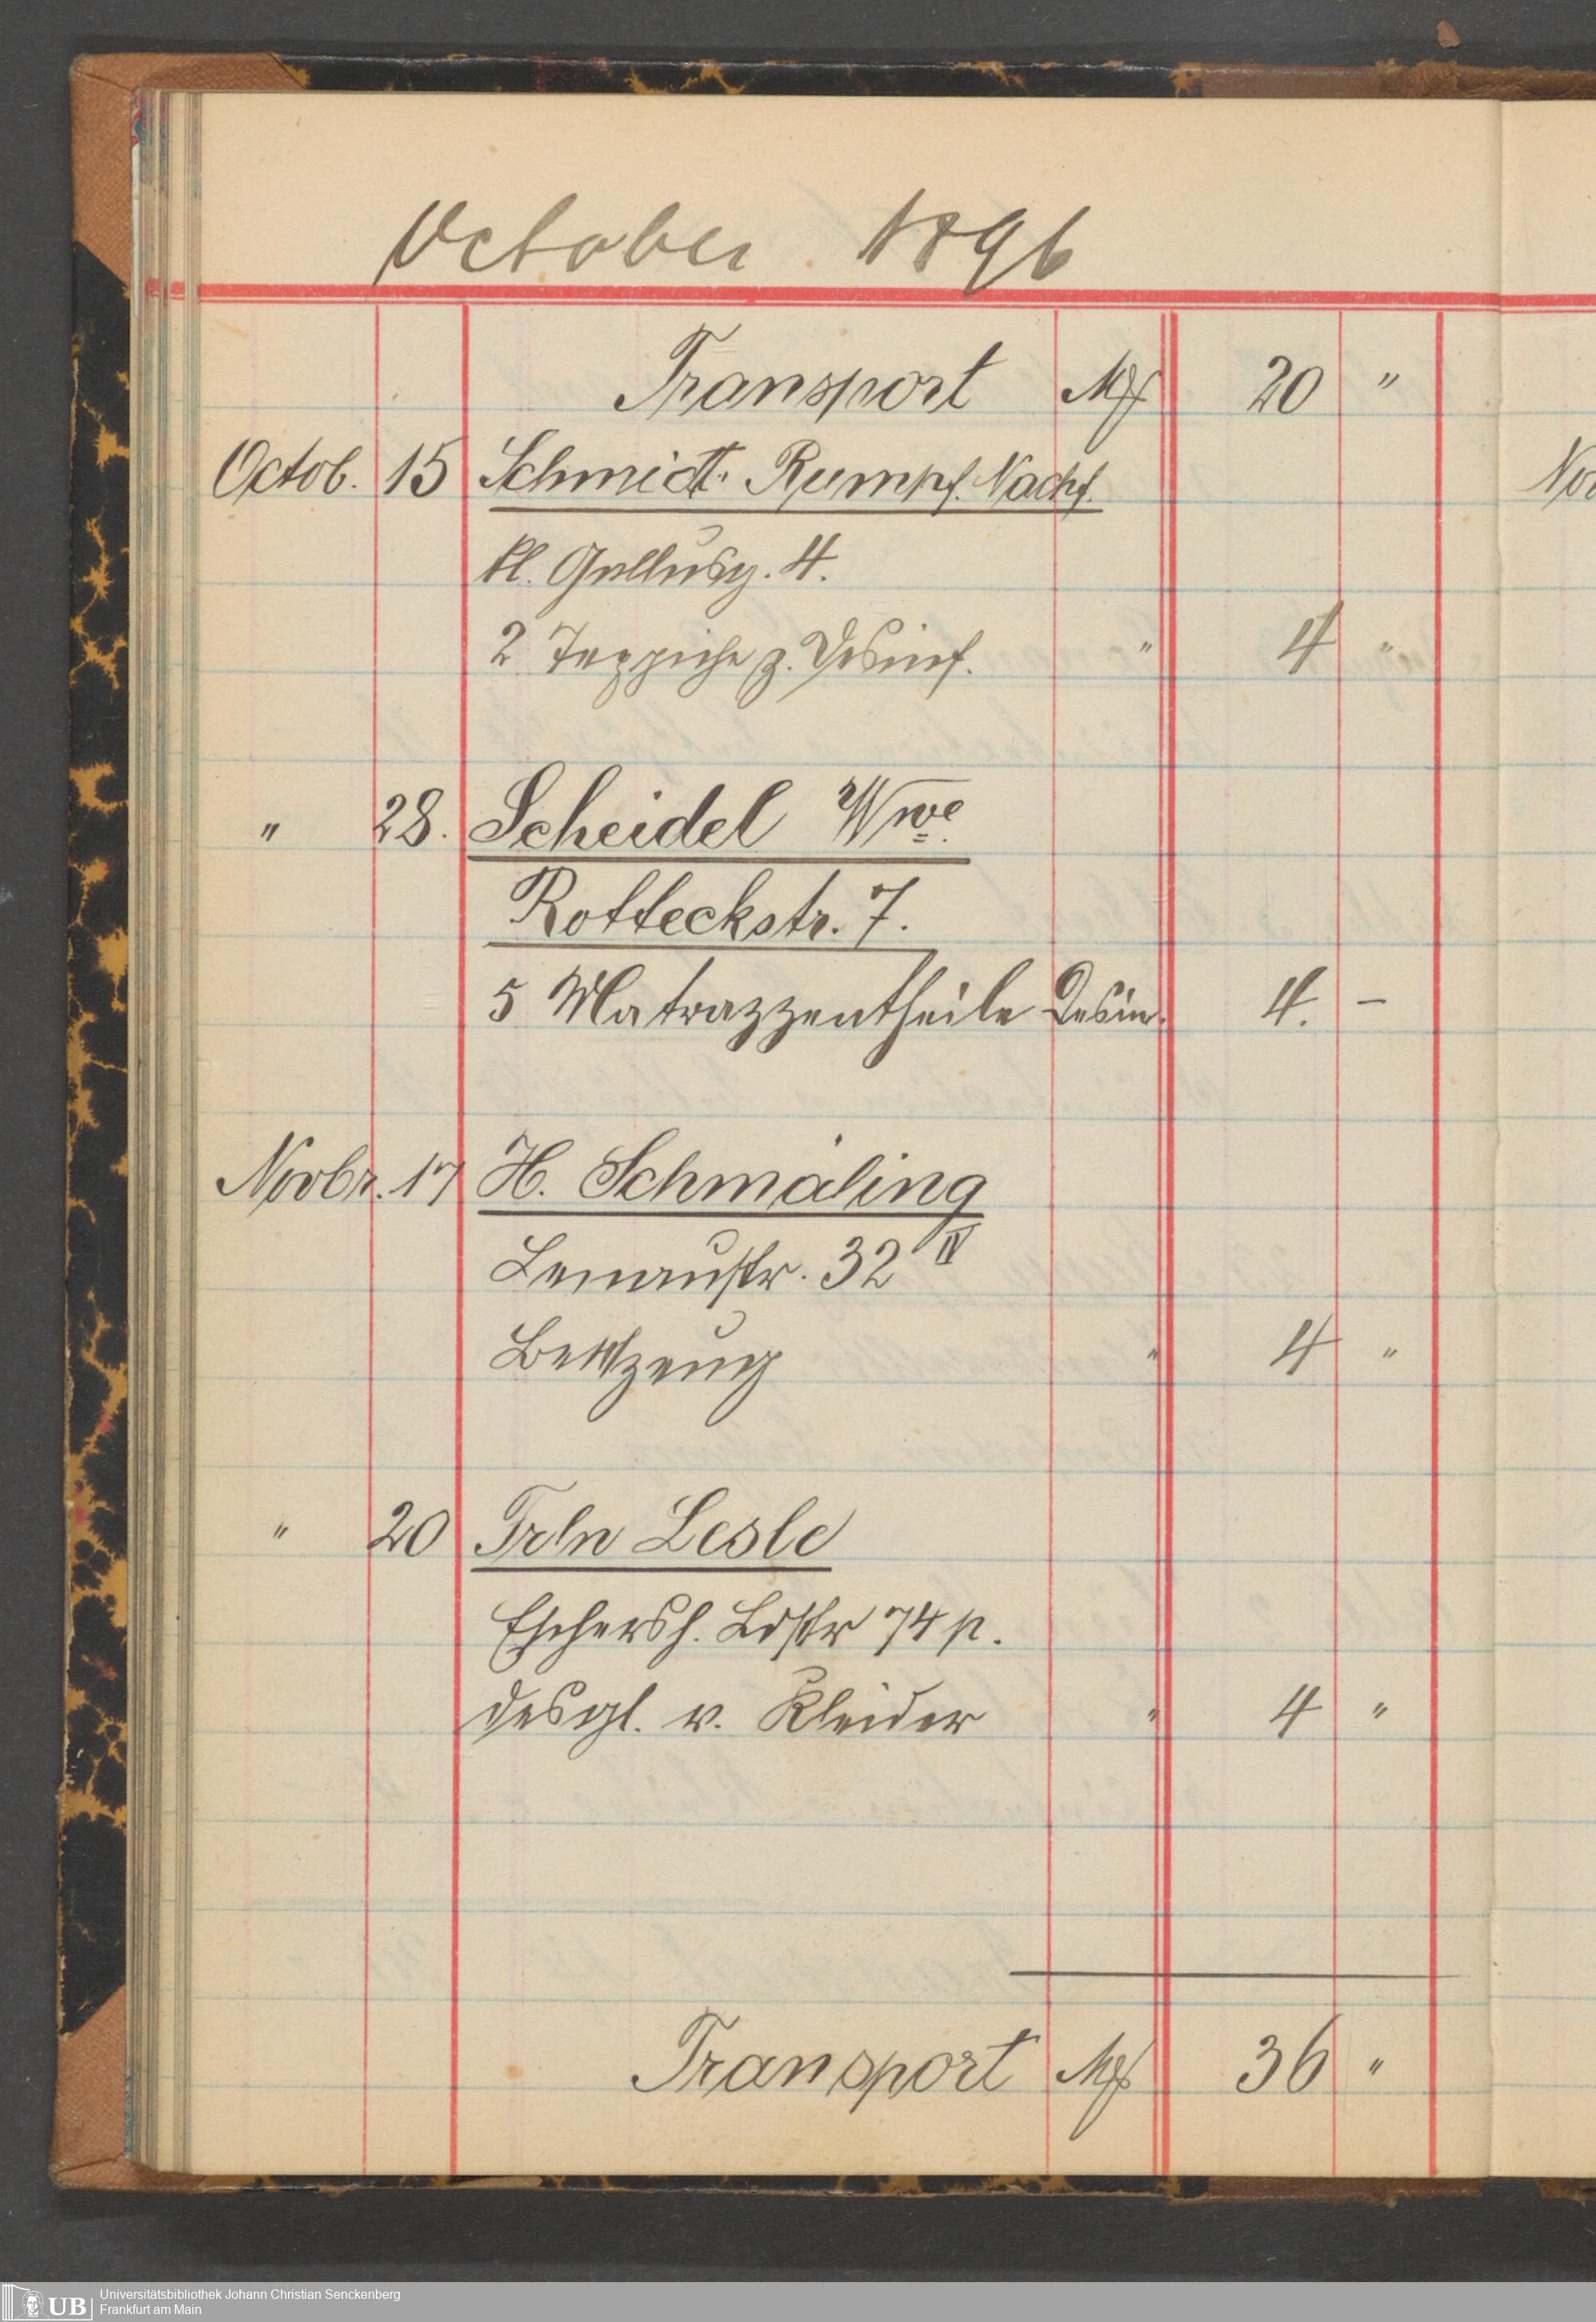 October 1896
Transport M 20 "
Octob. 15 Schmidt. Rumpf. Nachf.
kl. Gallusg. 4.
2 Teppiche z. Desinf. " 4 "
" 28. Scheidel Wwe.
Rotteckstr. 7.
5 Matrazzentheile Desin. 4. –
Novbr. 17 H. Schmäling
Lenaustr. 32 IV
Bettzeug " 4 "
" 20 Frln Lesle
Eschersh. Ldstr 74 p.
desgl. v. Kleider " 4 "
Transport M 36 "
Nov
UB Universitätsbibliothek Johann Christian Senckenberg
Frankfurt am Main